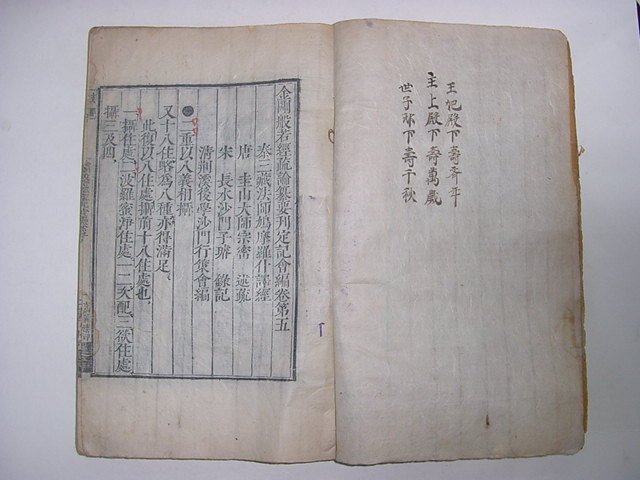 王妃殿下壽齊年
主上殿下壽萬歲
世子邸下壽千秋
金剛般若經疏論纂要刊定記會編卷第五
秦三藏法師鳩摩羅什譯經
唐 圭山大師宗密 述疏
宋 長水沙門子璿 錄記
清荊溪後學沙門行策會編
一重以八義相攝
又十八住略爲八種亦得滿足
此復以八住處攝前十八住處也
攝住處二波羅蜜淨住處一二大配三欲住處
攝三及四